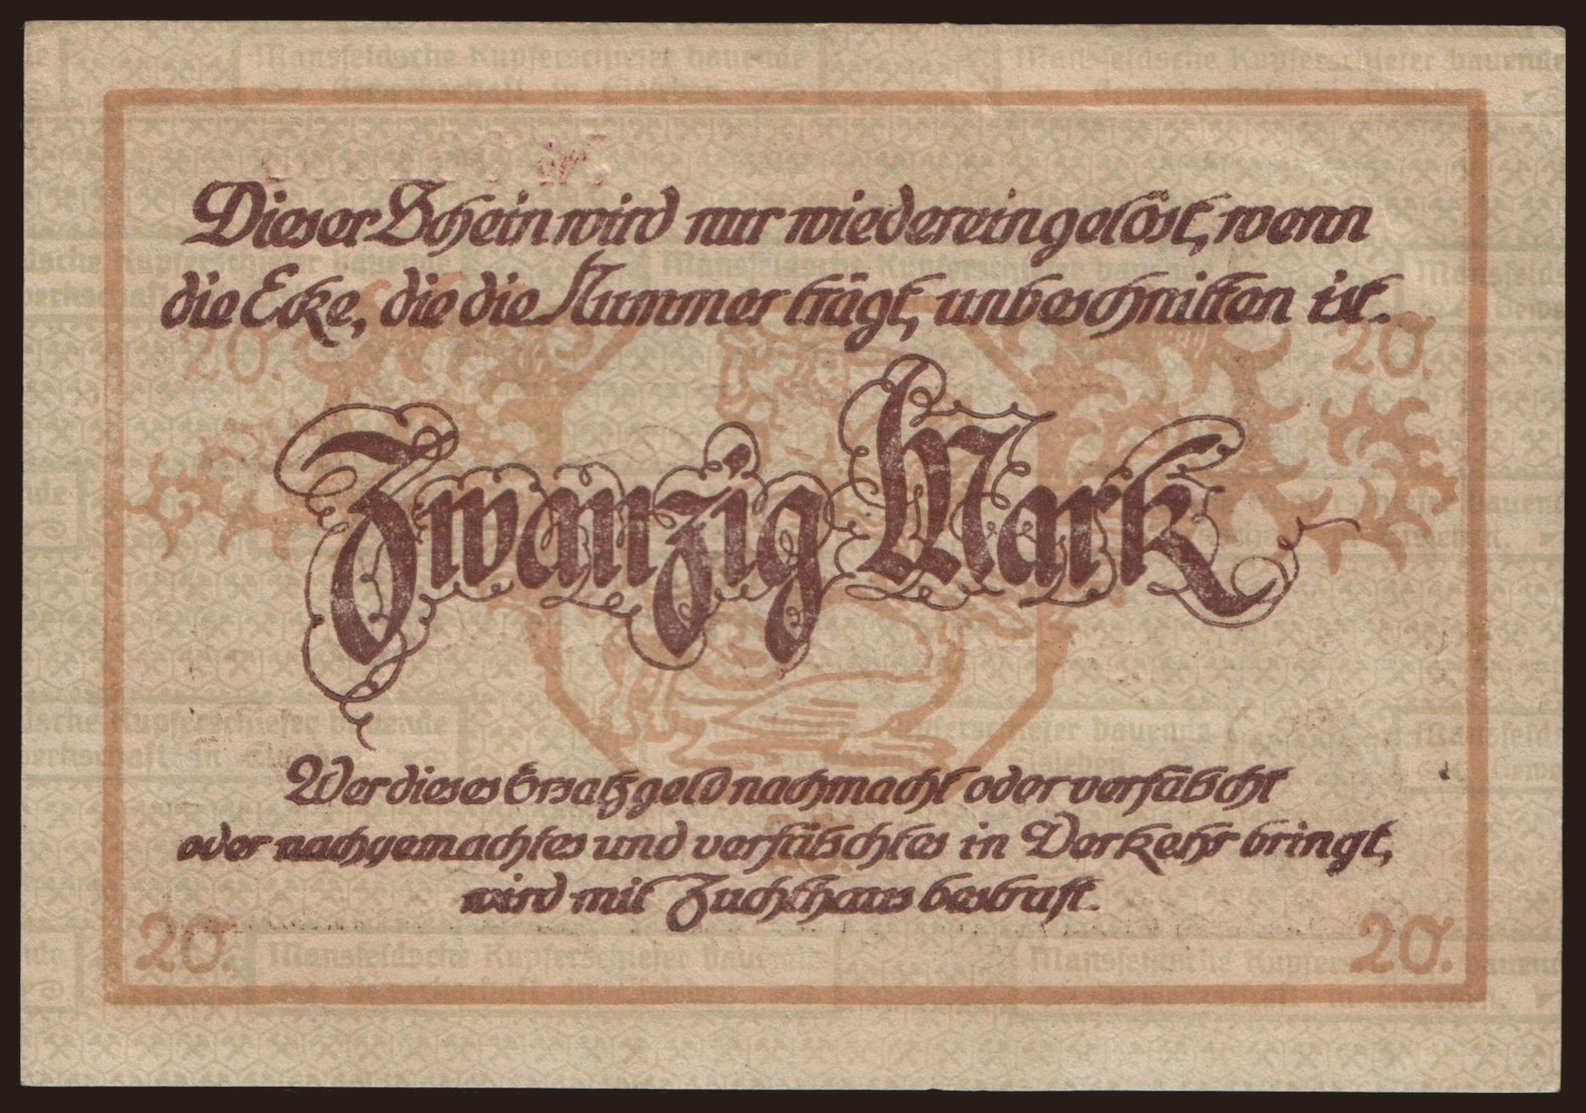 Mansfeldsche Kupferschiefer bauende
Gewerkschaft in Eisleben
Dieser Schein wird nur wiedereingelöst, wenn
die Ecke, die die Nummer trägt, unbeschnitten ist.
20. 20.
Zwanzig Mark
Wer dieses Ersatzgeld nachmacht oder verfälscht
oder nachgemachtes und verfälschtes in Verkehr bringt,
wird mit Zuchthaus bestraft.
20. 20.
Mansfeldsche Kupferschiefer bauende